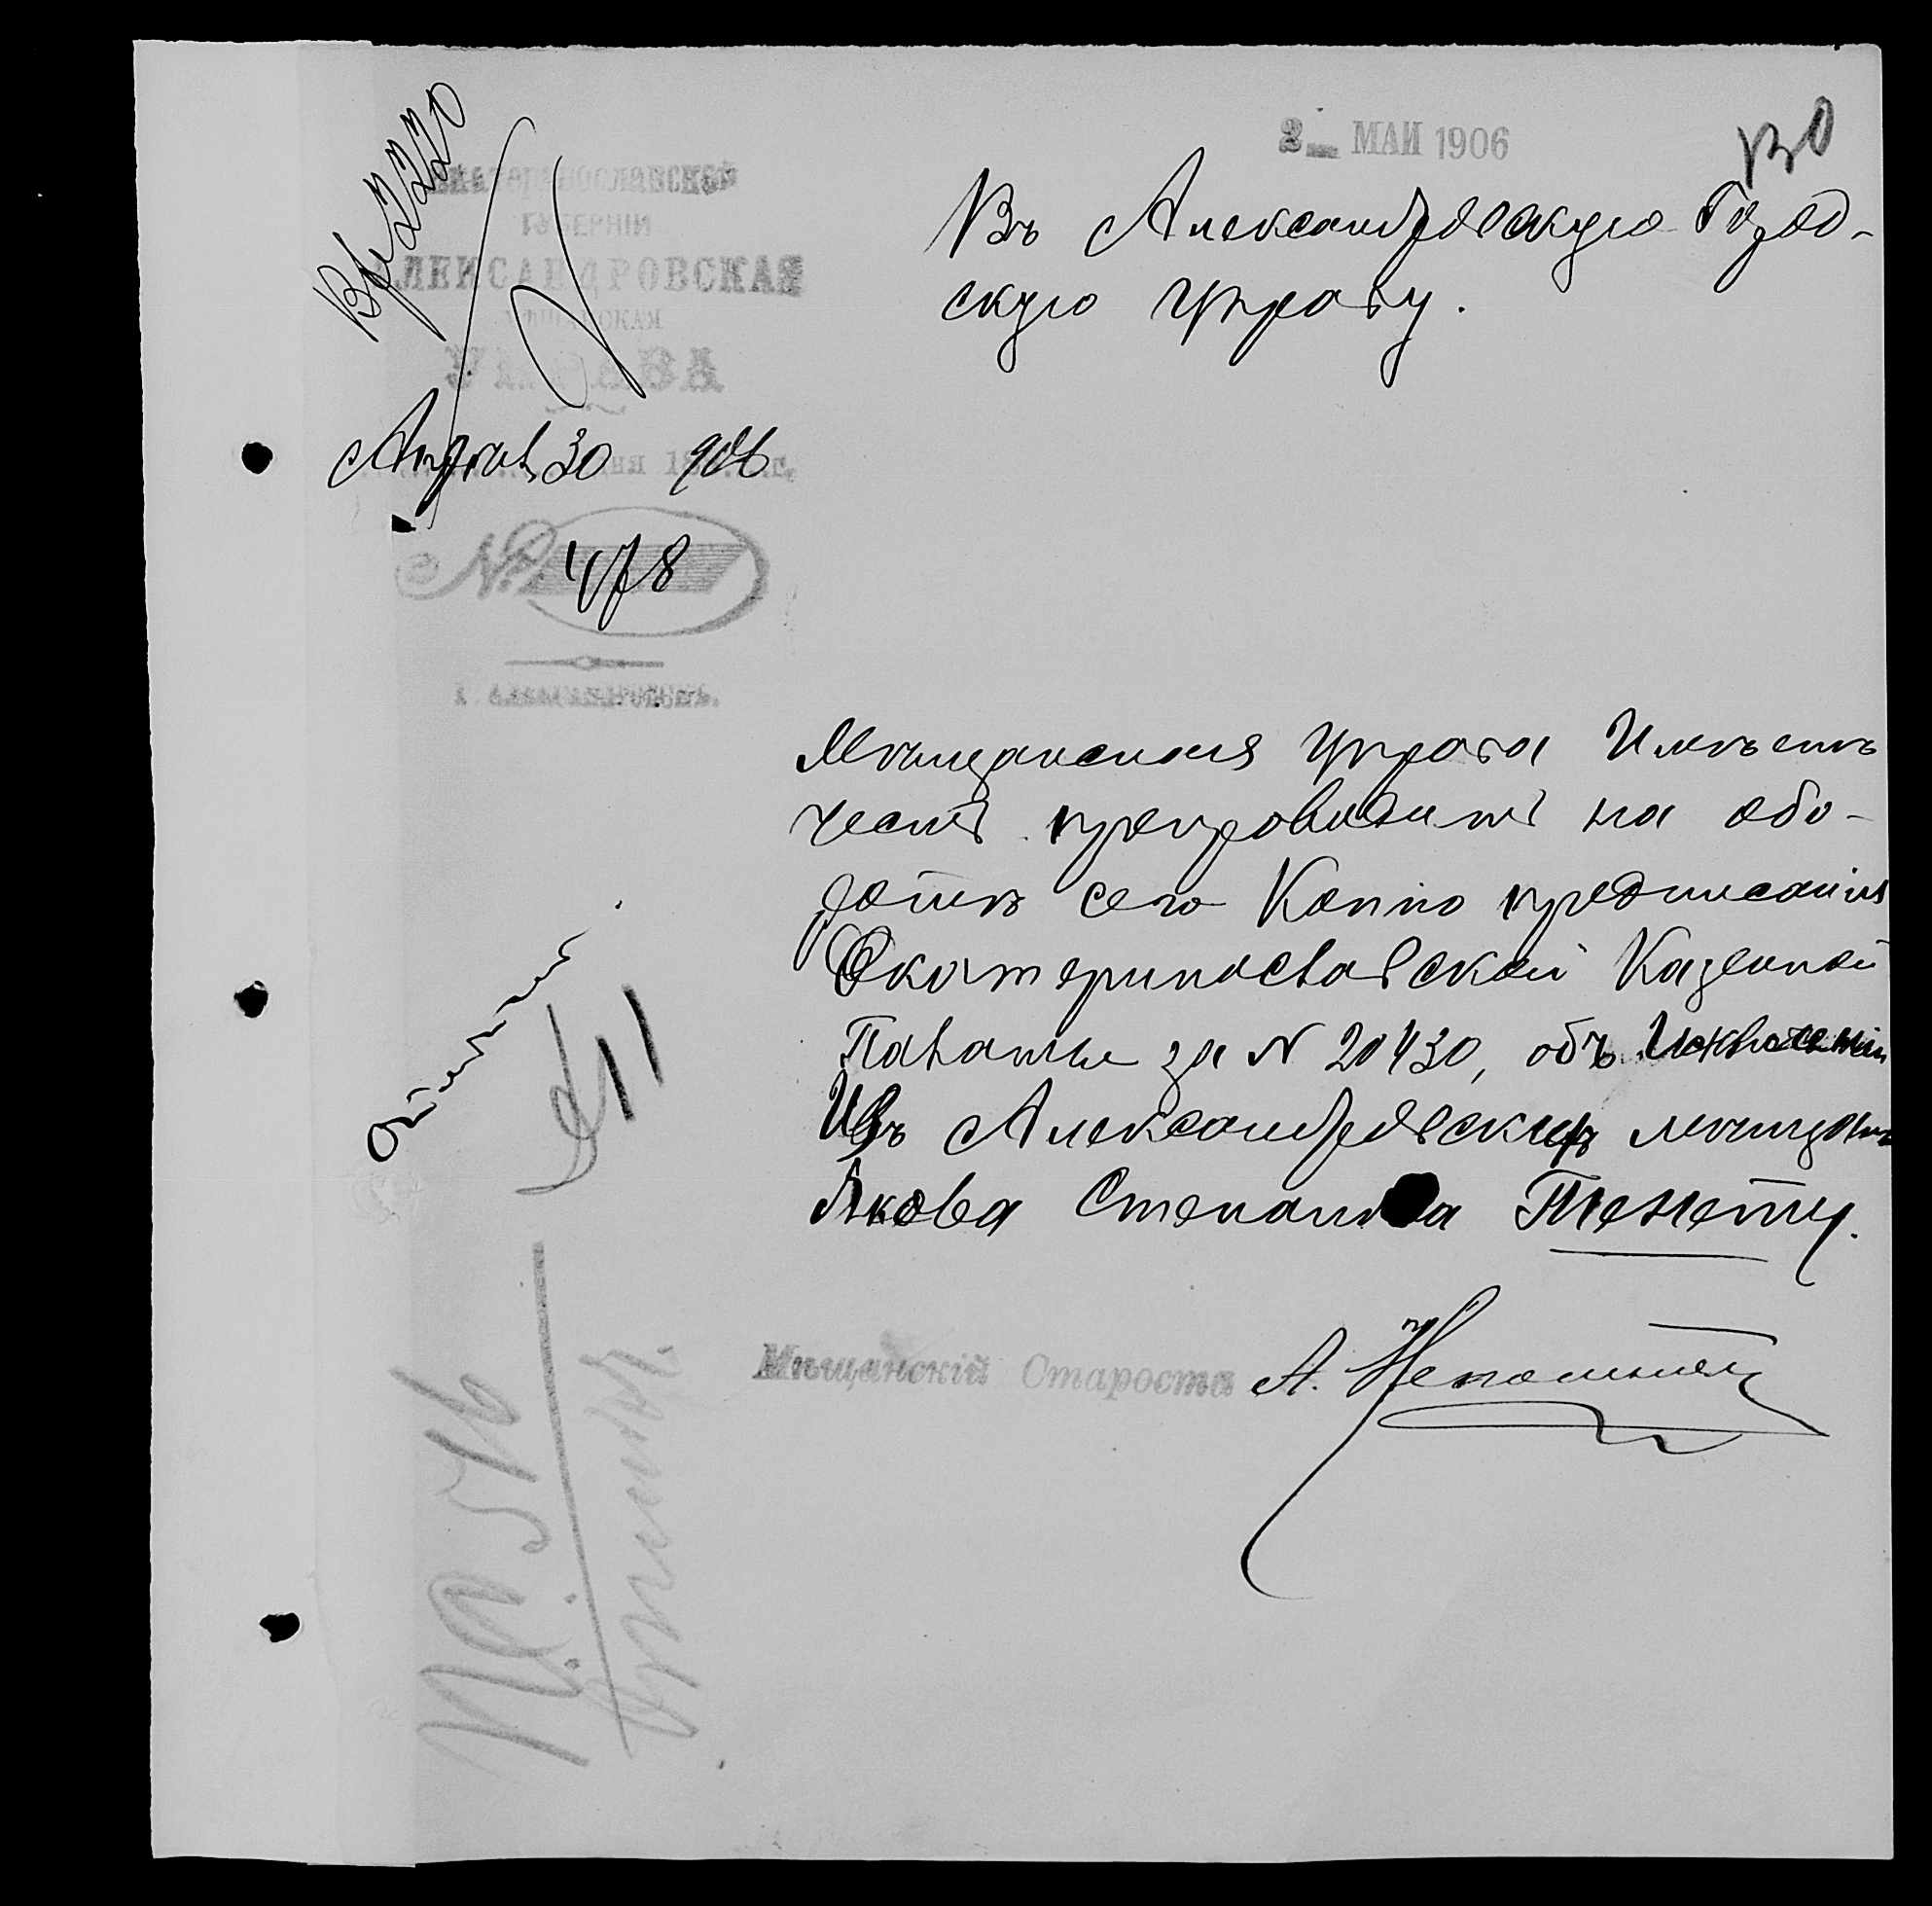 2 МАИ 1906
Вх 2220
Екатеринославской
ГУБЕРНІИ
АЛЕКСАНДРОВСКАЯ
МѢЩАНСКАЯ
УПРАВА
Апрѣля 30 дня 1906 г.
№ 478
Г. АЛЕКСАНДРОВСКЪ.
Въ Александровскую Город-
скую Управу.
Мѣщанская Управа Имѣетъ
честь препроводить на обо-
ротѣ сего Копію предписанія
Екатеринославской Казенной
Палаты за N 20430, объ Исключеніи
Изъ Александровскихъ мѣщанъ
Якова Степанова Тенету.
Мѣщанскій Староста А.